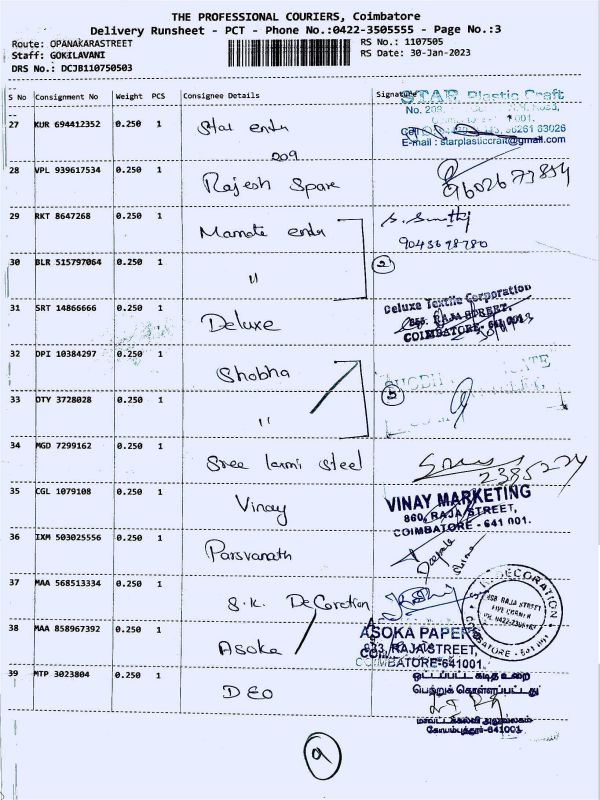 THE PROFESSIONAL COURIERS, Coimbatore
Delivery Runsheet - PCT - Phone No.:0422-3505555 - Page No.:3
Route: OPANAKARASTREET
Staff: GOKILAVANI
DRS No.: DCJB110750503
RS No.: 1107505
RS Date: 30-Jan-2023
S No Consignment No Weight PCS Consignee Details Signature
STAR Plastic Craft
No. 209,
27 KUR 694412352 0.250 1 Star entr
209
98261 83026
E-mail : starplasticcraft@gmail.com
28 VPL 939617534 0.250 1 Rajesh Spare
29 RKT 8647268 0.250 1 Mamate entr
9043698780
30 BLR 515797064 0.250 1 " 2
31 SRT 14866666 0.250 1 Deluxe
Deluxe Textile Corporation
RAJA STREET,
COIMBATORE- 641 001.
32 DPI 10384297 0.250 1 Shobha
33 OTY 3728028 0.250 1 "
34 MGD 7299162 0.250 1 Sree laxmi steel
2385274
35 CGL 1079108 0.250 1 Vinay
VINAY MARKETING
860, RAJA STREET,
COIMBATORE - 641 001.
36 IXM 503025556 0.250 1 Parsvanath
37 MAA 568513334 0.250 1 S.K. Decoration
DECORATION
858 RAJA STREET
FIVE CORNER
COIMBATORE - 641 001
38 MAA 858967392 0.250 1 Asoka
ASOKA PAPER
833, RAJA STREET,
COIMBATORE-641001.
39 MTP 3023804 0.250 1 DEO
ஒட்டப்பட்ட கடித உறை
பெற்றுக் கொள்ளப்பட்டது
மாவட்டக்கல்வி அலுவலகம்
கோயம்புத்தூர்-641001
9